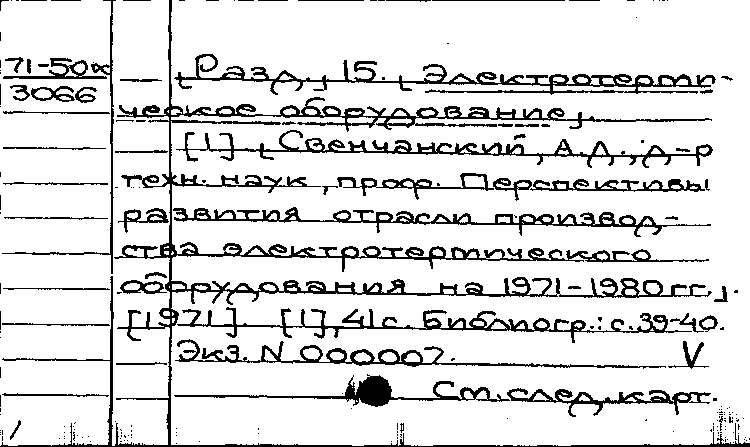 71-50к
3066
— [Разд.] 15. [Электротерми-
ческое оборудование].
[1] [Свенчанский, А.Д., д-р
техн. наук, проф. Перспективы
развития отрасли производ-
ства электротермического
оборудования на 1971-1980 гг.].
[1971]. [1], 41 с. Библиогр.: с. 39-40.
Экз. N 000007. V
См. след. карт.